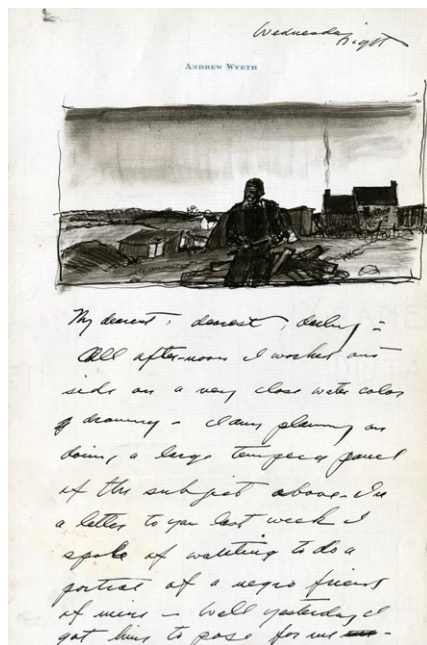 Wednesday night
ANDREW WYETH
My dearest, dearest, darling =
All after-noon I worked out
side on a very close water color
drawing – I am planning on
doing a large tempera panel
of the subject above. In
a letter to you last week I
spoke of wanting to do a
portrait of a negro friend
of mine – Well yesterday I
got him to pose for me –